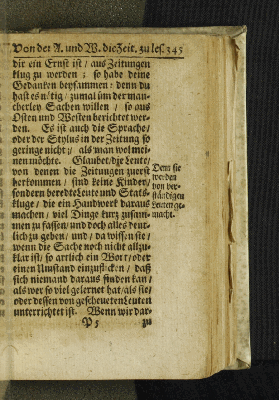 Von der A. und W. die Zeit. zu les. 345
dir ein Ernst ist / aus Zeitungen
klug zu werden ; so habe deine
Gedanken beysammen : denn du
hast es nötig / zumal üm der man-
cherley Sachen willen / so aus
Osten und Westen berichtet wer-
den. Es ist auch die Sprache /
oder der Stylus in der Zeitung so
geringe nicht / als man wol mei-
nen möchte. Glaubet / die Leute /
von denen die Zeitungen zuerst
herkommen / sind keine Kinder /
sondern beredte Leute und Stats-
kluge / die ein Handwerk daraus
machen / viel Dinge kurz zusam-
men zu fassen / und doch alles deut-
lich zu geben / und / da wissen sie /
wenn die Sache noch nicht allzu-
klar ist / so artlich ein Wort / oder
einen Umstand einzusticken / daß
sich niemand daraus finden kan /
als wer so viel gelernet hat / als sie /
oder dessen von gescheueten Leuten
unterrichtet ist. Wenn wir dar-
P 5 zu
Denn sie
werden
von ver-
ständigen
Leuten ge-
macht.